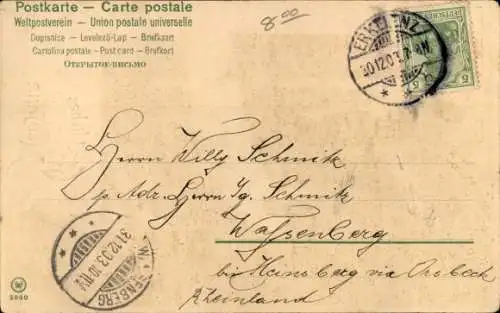 Postkarte — Carte postale
Weltpostverein — Union postale universelle
Dopisnice — Levelező-Lap — Briefkaart
Cartolina postale — Post card — Brefkort
ОТКРЫТОЕ ПИСЬМО
8 00
ERKELENZ
30.12.03.7-8N
5
Herrn Willy Schmitz
p. Adr. Herrn Jg. Schmitz
Wassenberg
bei Heinsberg via
Rheinland
31.12.03.
5960